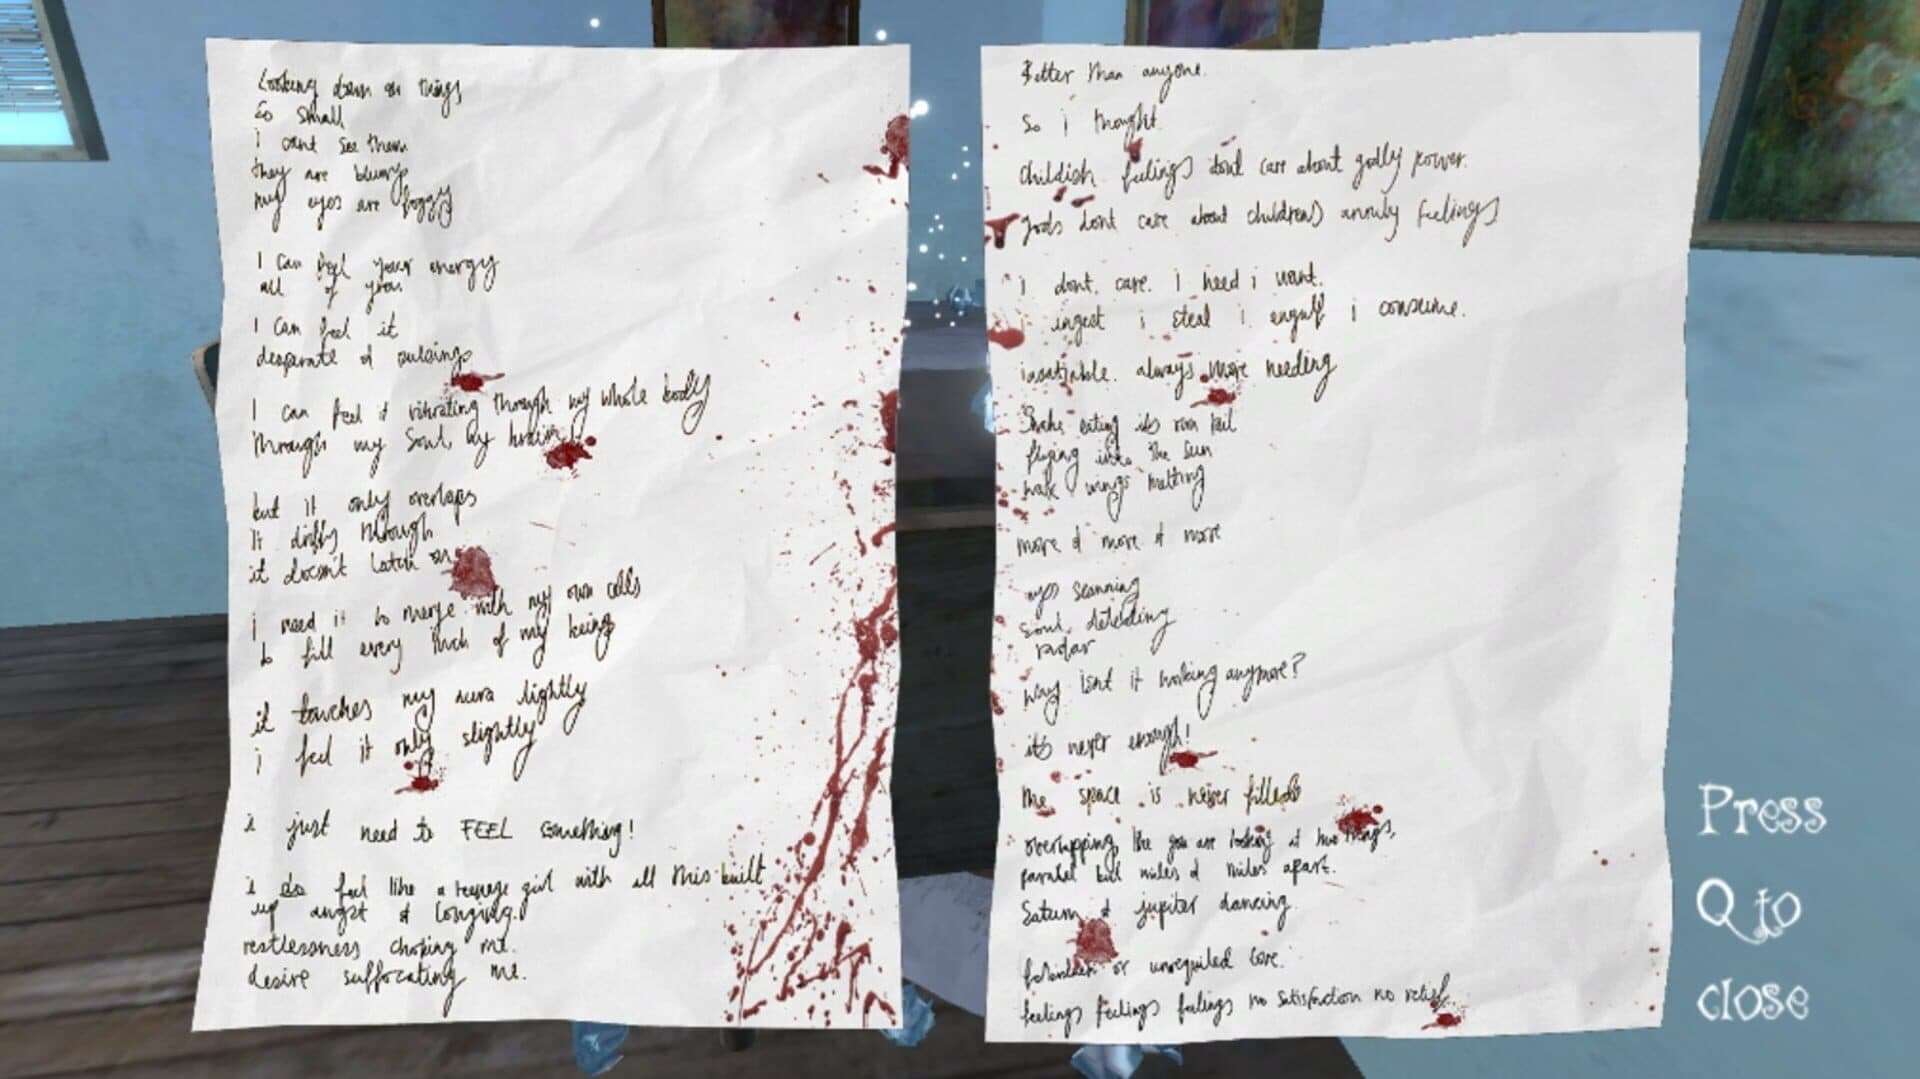 Looking down on things
So small
i cant see them
they are blurry
my eyes are foggy
I can feel your energy
all of you
I can feel it
desperate & pulsing
I can feel it vibrating through my whole body
through my soul my brain
but it only overlaps
it drifts through
it doesn't latch on
i need it to merge with my own cells
to fill every inch of my being
it touches my aura lightly
i feel it only slightly
i just need to FEEL something!
i do feel like a teenage girl with all this built
up angst & longing.
restlessness choking me.
desire suffocating me.
Better than anyone.
So i thought.
Childish feelings dont care about godly power.
gods dont care about childrens unruly feelings
i dont care. i need i want.
i ingest i steal i engulf i consume.
insatiable. always more needing
Snake eating its own tail
flying into the sun
wax wings melting
more & more & more
eyes scanning
soul detecting
radar
why isnt it working anymore?
it's never enough!
the space is never filled
overlapping like you are looking at two things,
parallel but miles & miles apart.
Saturn & jupiter dancing
forbidden or unrequited love.
feelings feelings feelings no satisfaction no relief.
Press
Q to
close